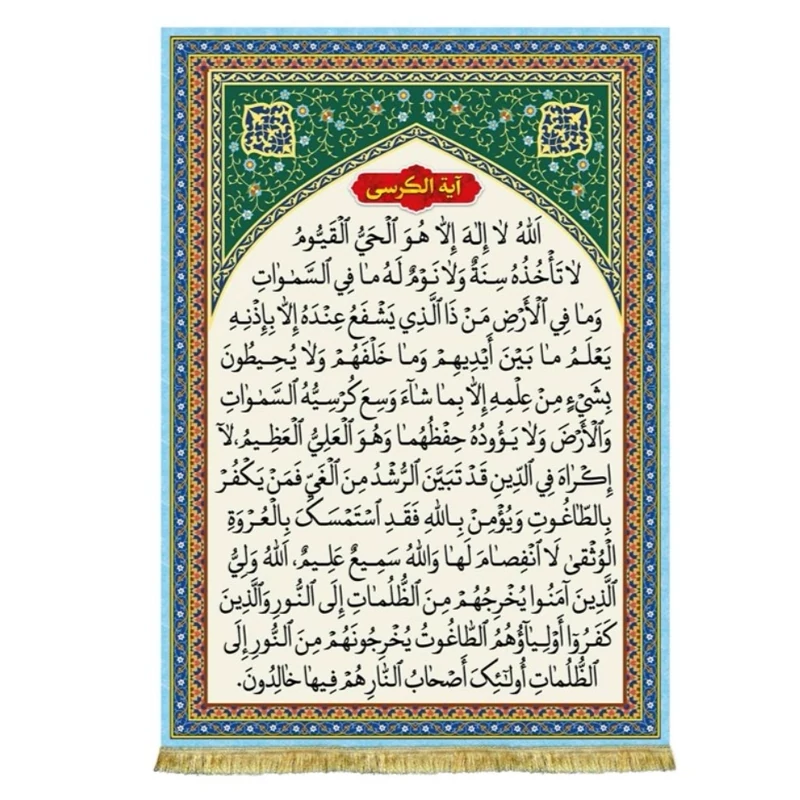 آية الكرسى
اَللهُ لا إِلٰهَ إِلّا هُوَ الْحَيُّ الْقَيُّومُ
لا تَأْخُذُهُ سِنَةٌ وَلا نَوْمٌ لَهُ ما فِي السَّمٰواتِ
وَما فِي الْأَرْضِ مَنْ ذَا الَّذِي يَشْفَعُ عِنْدَهُ إِلّا بِإِذْنِهِ
يَعْلَمُ ما بَيْنَ أَيْدِيهِمْ وَما خَلْفَهُمْ وَلا يُحِيطُونَ
بِشَيْءٍ مِنْ عِلْمِهِ إِلّا بِما شاءَ وَسِعَ كُرْسِيُّهُ السَّمٰواتِ
وَالْأَرْضَ وَلا يَؤُودُهُ حِفْظُهُما وَهُوَ الْعَلِيُّ الْعَظِيمُ، لا
إِكْراهَ فِي الدِّينِ قَدْ تَبَيَّنَ الرُّشْدُ مِنَ الْغَيِّ فَمَنْ يَكْفُرْ
بِالطّاغُوتِ وَيُؤْمِنْ بِاللهِ فَقَدِ اسْتَمْسَكَ بِالْعُرْوَةِ
الْوُثْقىٰ لَا انْفِصامَ لَها وَاللهُ سَمِيعٌ عَلِيمٌ، اَللهُ وَلِيُّ
الَّذِينَ آمَنُوا يُخْرِجُهُمْ مِنَ الظُّلُماتِ إِلَى النُّورِ وَالَّذِينَ
كَفَرُوا أَوْلِياؤُهُمُ الطّاغُوتُ يُخْرِجُونَهُمْ مِنَ النُّورِ إِلَى
الظُّلُماتِ أُولٰئِكَ أَصْحابُ النّارِ هُمْ فِيها خالِدُونَ.